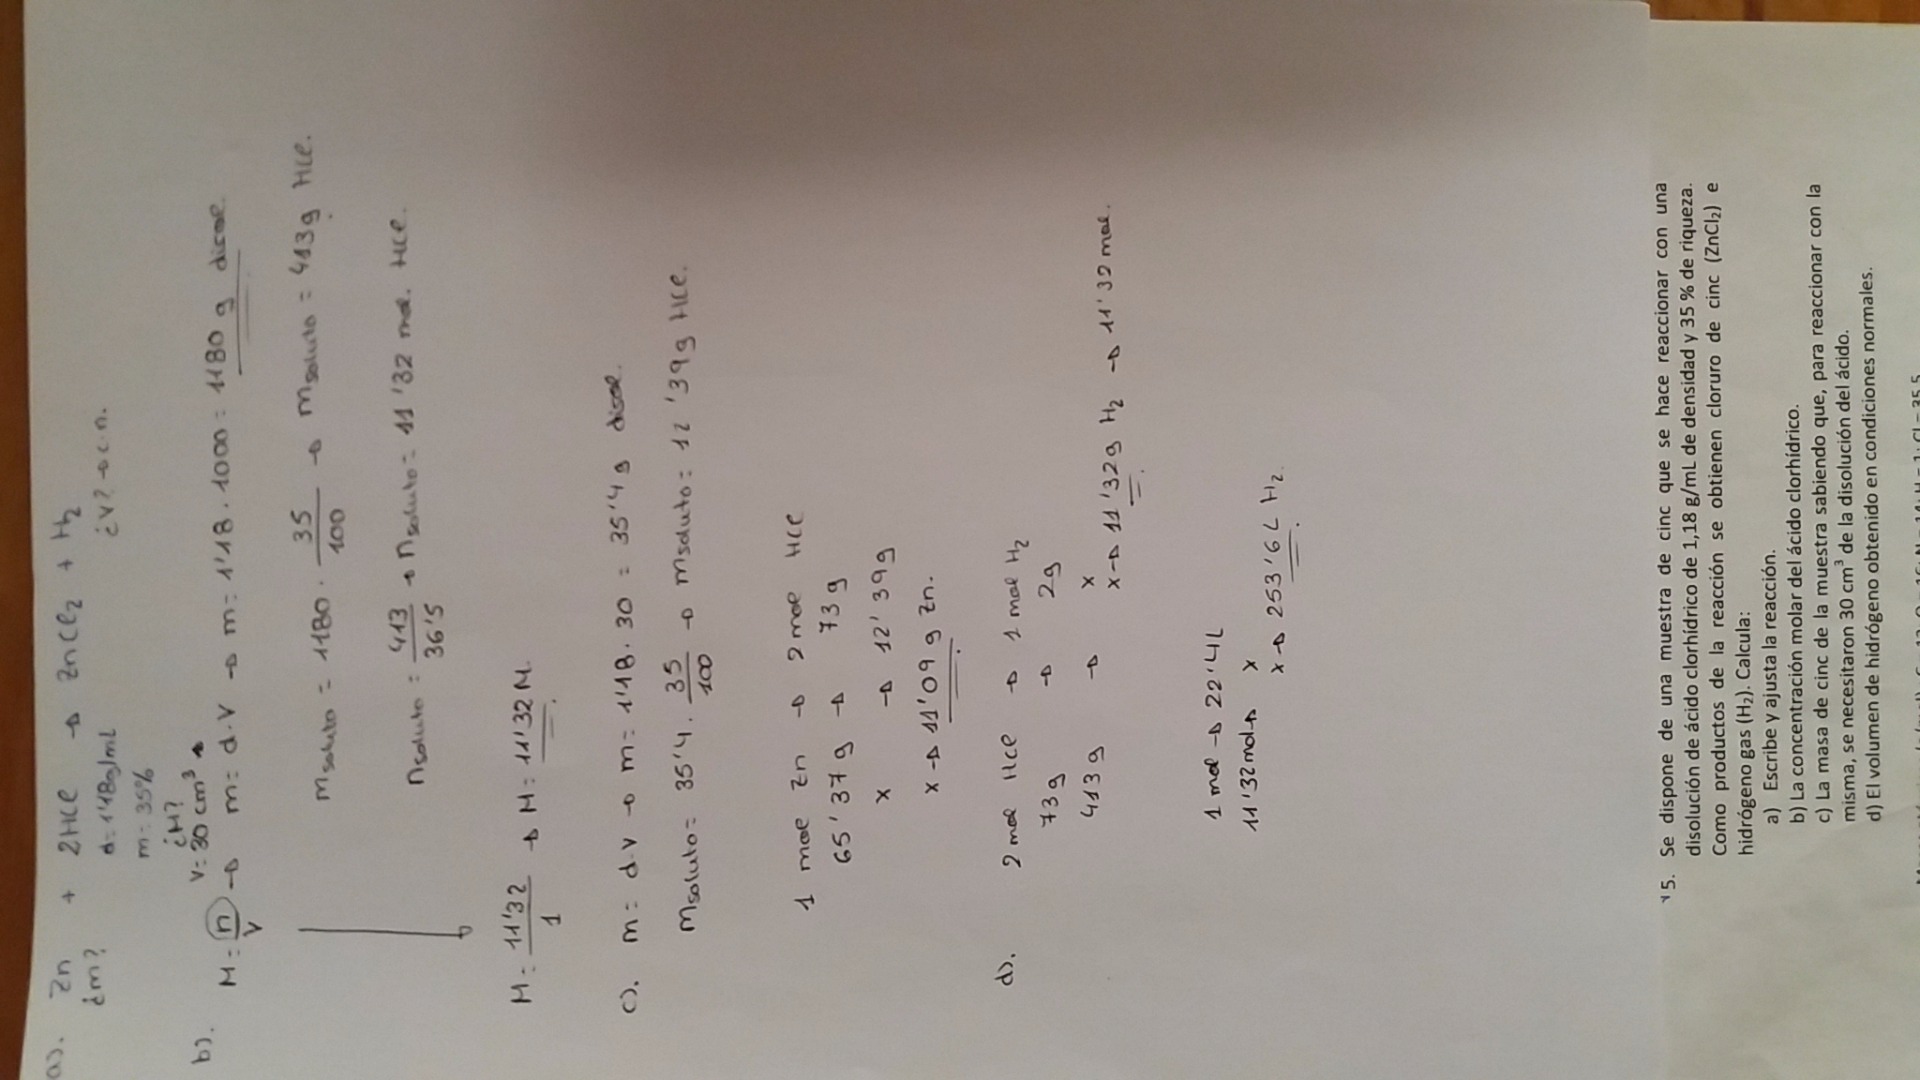 a). Zn + 2HCl → ZnCl₂ + H₂
¿m? d=1'18g/mL ¿V? → c.n.
m=35%
¿M?
V=30 cm³
b). M=n/V → m=d·V → m=1'18·1000=1180 g disol.
msoluto = 1180 · 35/100 → msoluto = 413g HCl.
nsoluto = 413/36'5 → nsoluto = 11'32 mol. HCl.
M=11'32/1 → M=11'32M.
c). m= d·V → m=1'18·30 = 35'4 g disol.
msoluto= 35'4 · 35/100 → msoluto= 12'39g HCl.
1 mol Zn → 2 mol HCl
65'37g → 73g
x → 12'39g
x → 11'09 g Zn.
d). 2 mol HCl → 1 mol H₂
73g → 2g
413g → x
x → 11'32g H₂ → 11'32 mol.
1 mol → 22'4L
11'32mol → x
x → 253'67L H₂.
5. Se dispone de una muestra de cinc que se hace reaccionar con una
disolución de ácido clorhídrico de 1,18 g/mL de densidad y 35 % de riqueza.
Como productos de la reacción se obtienen cloruro de cinc (ZnCl₂) e
hidrógeno gas (H₂). Calcula:
a) Escribe y ajusta la reacción.
b) La concentración molar del ácido clorhídrico.
c) La masa de cinc de la muestra sabiendo que, para reaccionar con la
misma, se necesitaron 30 cm³ de la disolución del ácido.
d) El volumen de hidrógeno obtenido en condiciones normales.